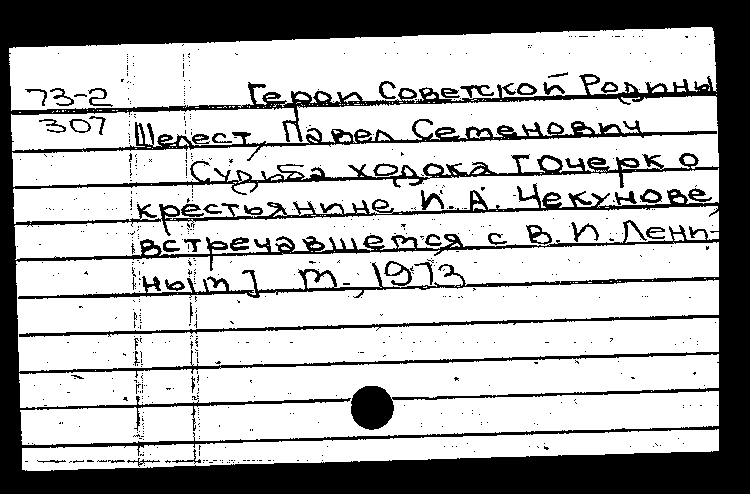 73-2 Герои Советской Родины
307 Шелест, Павел Семенович
Судьба ходока [Очерк о
крестьянине И. А. Чекунове,
встречавшемся с В. И. Лени-
ным] М., 1973